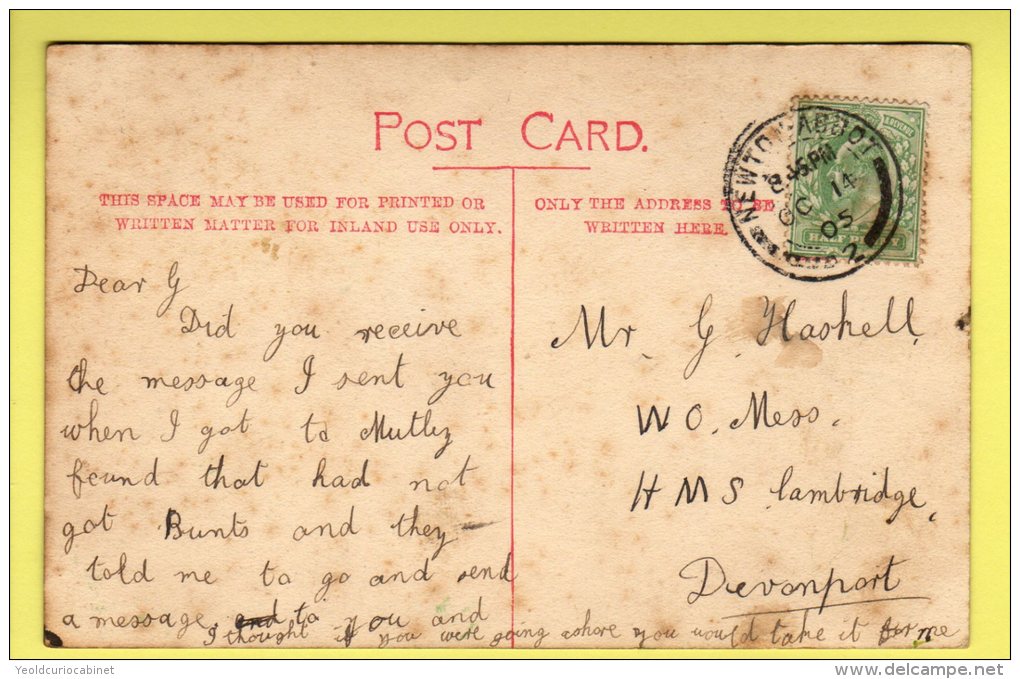 POST CARD.
THIS SPACE MAY BE USED FOR PRINTED OR
WRITTEN MATTER FOR INLAND USE ONLY.
ONLY THE ADDRESS TO BE
WRITTEN HERE.
NEWTON ABBOT
8.45PM
OC 14
05
2
& REVENUE
HALF PENNY
Dear G
Did you receive
the message I sent you
when I got to Mutley
found that had not
got Bunts and they
told me to go and send
a message, and to you and
I thought if you were going ashore you would take it for me
Mr. G. Haskell,
W O. Mess.
H M S Cambridge,
Devonport
Yeoldcuriocabinet
delcampe.net